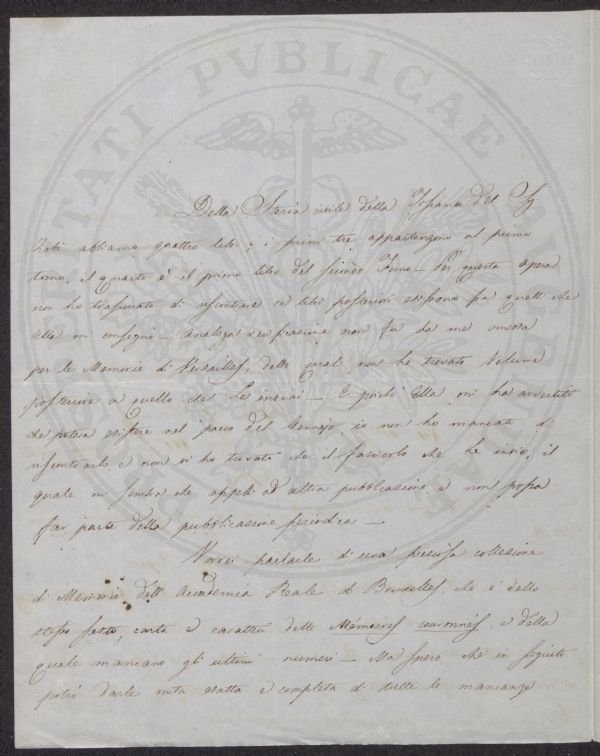 PVBLICAE
Della Storia civile della Toscana del Sg
Zobi abbiamo quattro libri; i primi tre appartengono al primo
tomo, il quarto è il primo libro del secondo Tomo — Per questa opera
non ho trascurato di riscontrare se libri posteriori esistono fra quelli che
Ella mi consegnò — Analoga verificazione non fu da me omessa
per le Memorie di Versailles, delle quali non ho trovato volume
posteriore a quello che Le inviai — E poiché Ella mi ha avvertito
che poteva esistere nel pacco del io non ho mancato di
riscontrarlo, e non vi ho trovato che il fascicolo che Le invio, il
quale mi sembra che appelli ad altra pubblicazione e non possa
far parte della pubblicazione periodica —
Vorrei parlarle di una preziosa collezione
di Memorie dell' Accademia Reale di Bruxelles, che è dello
stesso sesto, carta e caratteri delle Mémoires couronnés, e della
quale mancano gli ultimi numeri — Ma spero che in seguito
potrò darle nota esatta e completa di tutte le mancanze